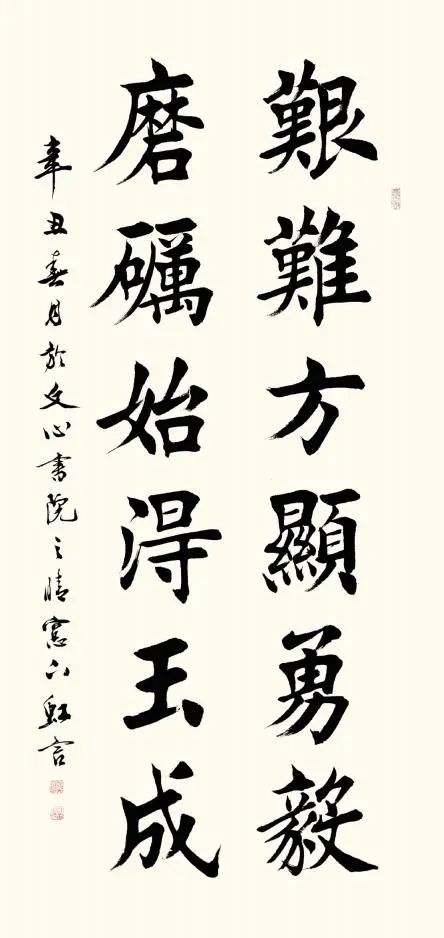 艱難方顯勇毅
磨礪始得玉成
辛丑春月於文心書院之晴窗下虹言